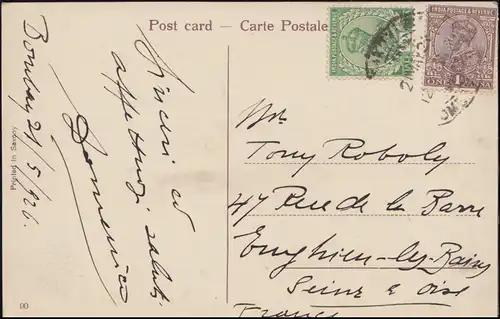 Post card — Carte Postale
INDIA POSTAGE & REVENUE
ONE 1A ANNA
Bombay 21/5/926.
Sinceri ed
affettuosi saluti
Domenico
Mr
Tony Roboly
47 Rue de la Barre
Enghien-les-Bains
Seine & Oise
France
Printed in Saxony
90